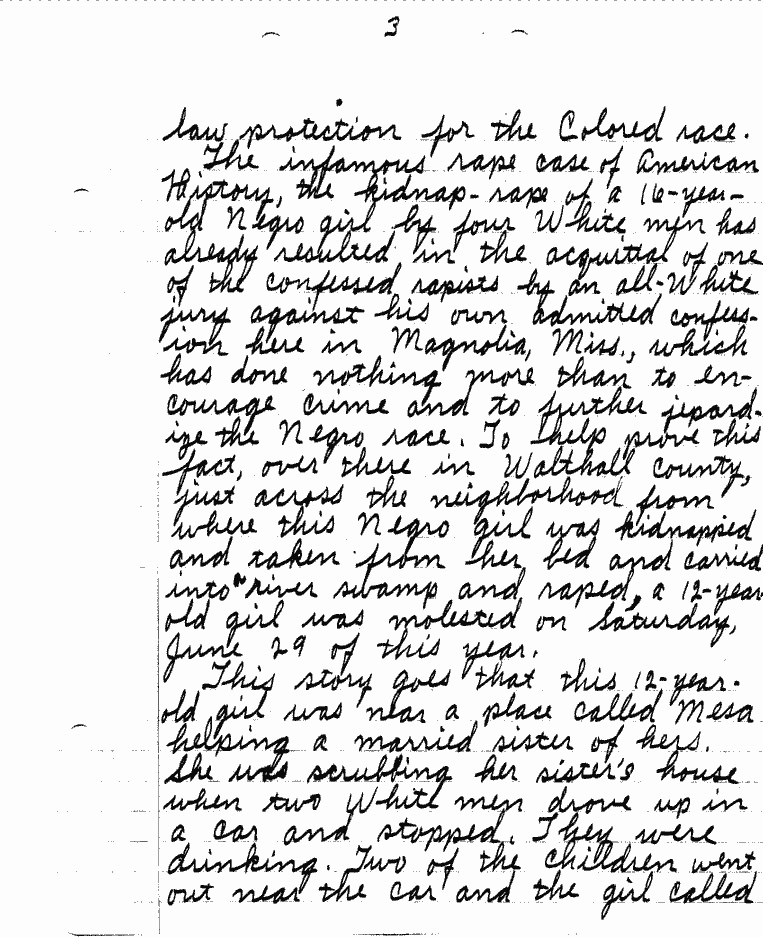 3
law protection for the Colored race.
The infamous rape case of American
History, the kidnap-rape of a 16-year-
old Negro girl by four White men has
already resulted in the acquittal of one
of the confessed rapists by an all-White
jury against his own admitted confess-
ion here in Magnolia, Miss., which
has done nothing more than to en-
courage crime and to further jepard-
ize the Negro race. To help prove this
fact, over there in Walthall County,
just across the neighborhood from
where this Negro girl was kidnapped
and taken from her bed and carried
into a river swamp and raped, a 12-year
old girl was molested on Saturday,
June 29 of this year.
This story goes that this 12-year-
old girl was near a place called Mesa
helping a married sister of hers.
She was scrubbing her sister's house
when two White men drove up in
a car and stopped. They were
drinking. Two of the children went
out near the car and the girl called